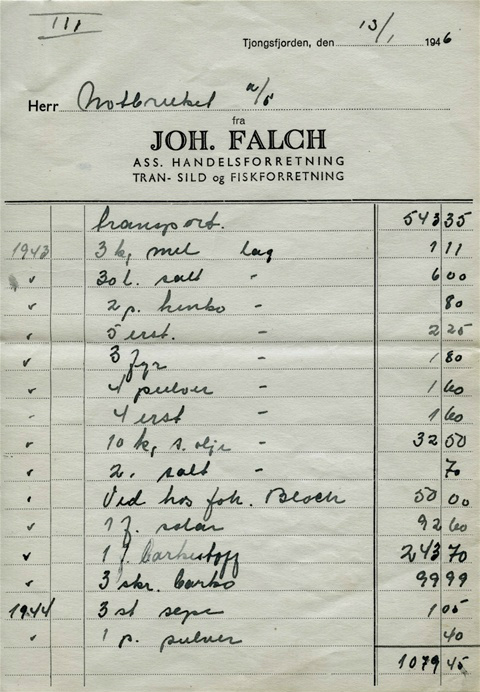 III
Tjongsfjorden, den 13/1 1946
Herr Notbruket a/s
fra
JOH. FALCH
ASS. HANDELSFORRETNING
TRAN- SILD og FISKFORRETNING
transport. 543 35
1943 3 kg mel lag 1 11
" 30 l. salt " 6 00
" 2 p. henko " 80
" 5 erst. " 2 25
" 3 fyr " 1 80
" 4 pulver " 1 60
" 4 erst " 1 60
" 10 kg s. olje " 32 50
" 2. salt " 70
" Ved hos Joh. Bloch 50 00
" 1 f. solar 92 60
" 1 f. barkestoff 243 70
" 3 skr. barko 99 99
1944 3 st sepe 1 05
" 1 p. pulver 40
1079 45